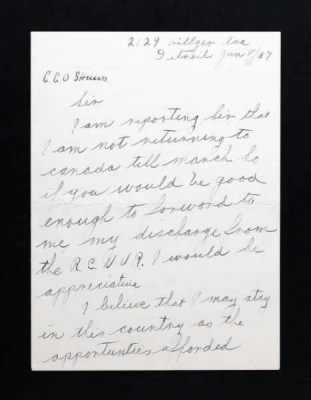 2129 Hillger Ave
Detroit Jan 8/47
C.C.O
Sir
I am reporting Sir that
I am not returning to
canada till march so
if you would be good
enough to forword to
me my discharge from
the R.C.N.V.R. I would be
appreciative
I beliive that I may stay
in this country as the
opportunties afforded